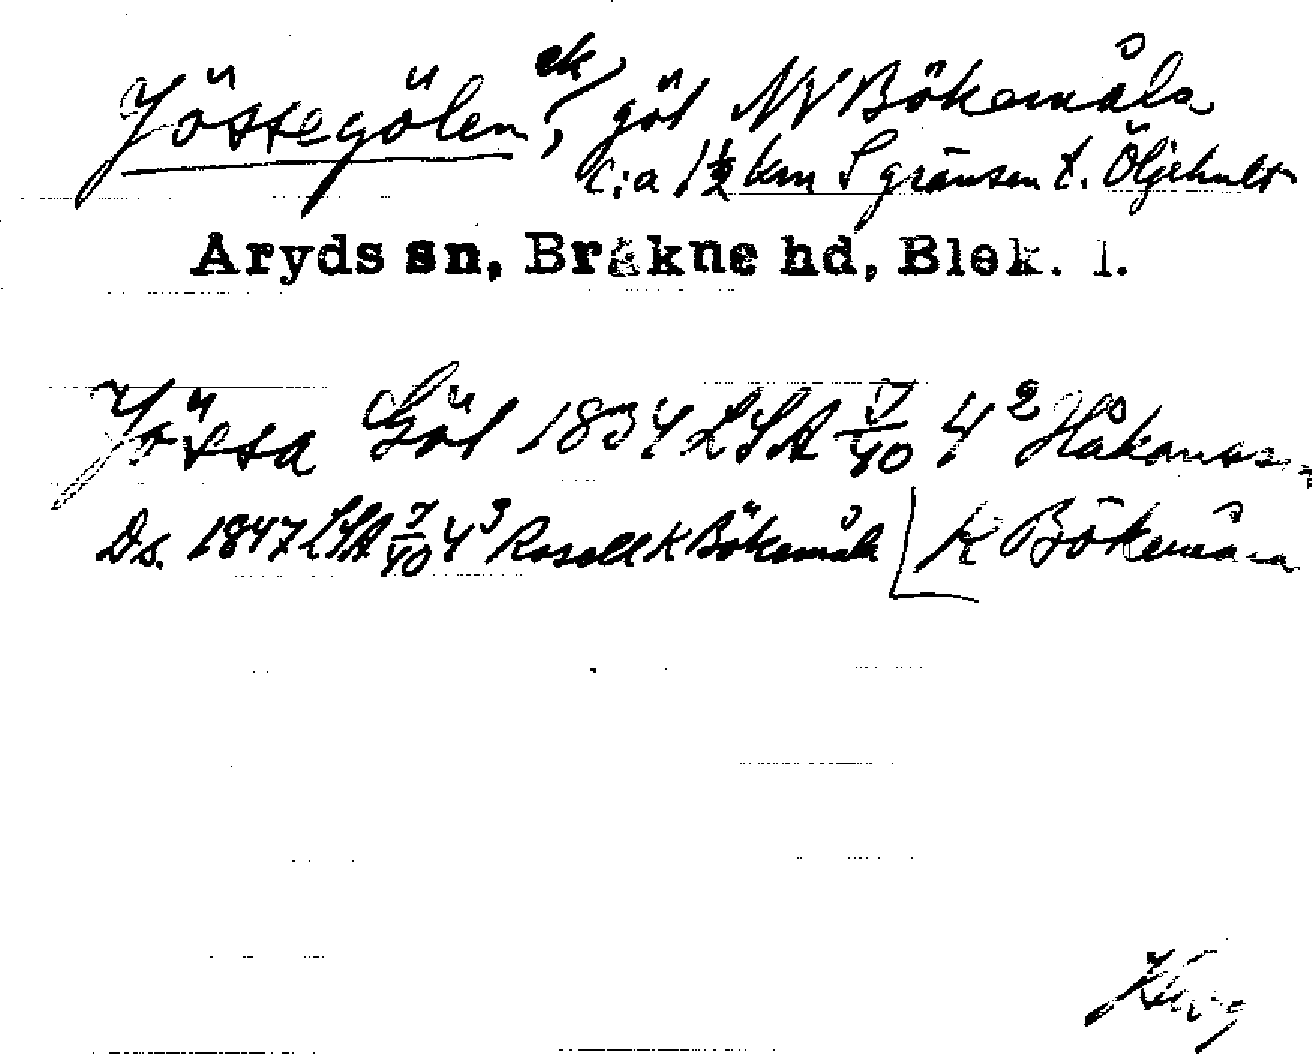 Jössegölen, ek göl NV Bökemåla
c:a 1 1/2 km S gränsen t. Öljehult
Aryds sn, Bräkne hd, Blek. l.
Jössa Göl 1834 LSA 7/40 4² Håkanas
Ds. 1847 LSA 7/40 4³ K Bökemåla [K Bökemåla